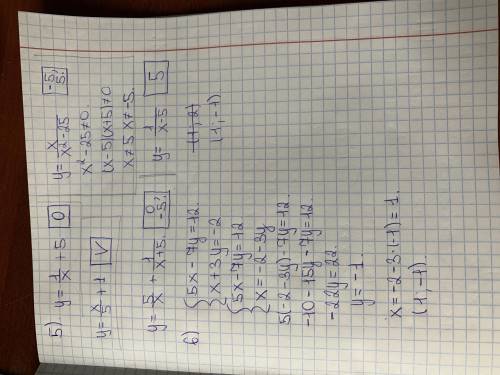 5) y = 1/x + 5 [0]
y = x/5 + 1 [V]
y = 5/x + 1/(x+5). [0; -5.]
y = x/(x²-25) [-5; 5.]
x² - 25 ≠ 0.
(x-5)(x+5) ≠ 0
x ≠ 5 x ≠ -5.
y = 1/(x-5) [5]
6) {5x - 7y = 12.
{x + 3y = -2
{5x - 7y = 12
{x = -2 - 3y
5(-2 - 3y) - 7y = 12.
-10 - 15y - 7y = 12.
-22y = 22.
y = -1.
x = -2 - 3·(-1) = 1.
(1, -1).
(1; 2)
(1; -1)